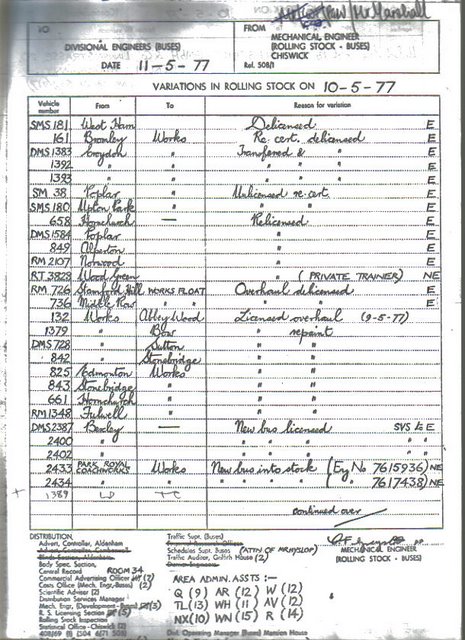 Mr Marshall
TO
FROM
DIVISIONAL ENGINEERS (BUSES)
MECHANICAL ENGINEER
(ROLLING STOCK - BUSES)
CHISWICK
DATE 11-5-77
Ref. 508/1
VARIATIONS IN ROLLING STOCK ON 10-5-77
Vehicle number From To Reason for variation
SMS 181 West Ham Delicensed E
161 Bromley Works Re. cert. delicensed E
DMS 1383 Croydon " Transfered & " E
1392 " " " " " E
1393 " " " " " E
SM 38 Poplar " Unlicensed re. cert. E
SMS 180 Upton Park " " " E
658 Hornchurch — Relicensed E
DMS 1584 Poplar " E
849 Alperton " E
RM 2107 Norwood " E
RT 3828 Wood Green " (PRIVATE TRAINER) NE
RM 726 Stamford Hill WORKS FLOAT Overhaul delicensed E
736 Middle Row " " " " E
132 Works Abbey Wood Licensed overhaul (9-5-77)
1379 " Bow " repaint
DMS 728 " Sutton " "
842 " Stonebridge " "
825 Edmonton Works " "
843 Stonebridge " " "
661 Hornchurch " " "
RM 1348 Fulwell " " "
DMS 2387 Bexley — New bus licensed SVS E
2400 " " " " "
2402 " " " " "
2433 PARK ROYAL COACHWORKS Works New bus into stock (Eng No 7615936) NE
2434 " " " " " " " 7617438) NE
+ 1389
continued over
DISTRIBUTION
Advert. Controller, Aldenham
Body Spec. Section,
Central Record ROOM 34
Commercial Advertising Officer (2)
Costs Office (Mech. Engr-Buses) (2)
Scientific Adviser (2)
Distribution Services Manager
Mech. Engr. (Development-Buses) (3)
R. S. Licensing Section (5)
Rolling Stock Inspection
Statistical Office - Chiswick (2)
Traffic Supt. (Buses)
Schedules Supt. (Buses) (ATTN OF MR HYSLOP)
Traffic Auditor, Griffith House (2)
MECHANICAL ENGINEER
(ROLLING STOCK - BUSES)
AREA ADMIN. ASSTS :-
Q (9) AR (12) W (12)
TL (13) WH (11) AV (12)
NX (10) WN (15) R (14)
Dist. Operating Manager (Buses) Mansion House